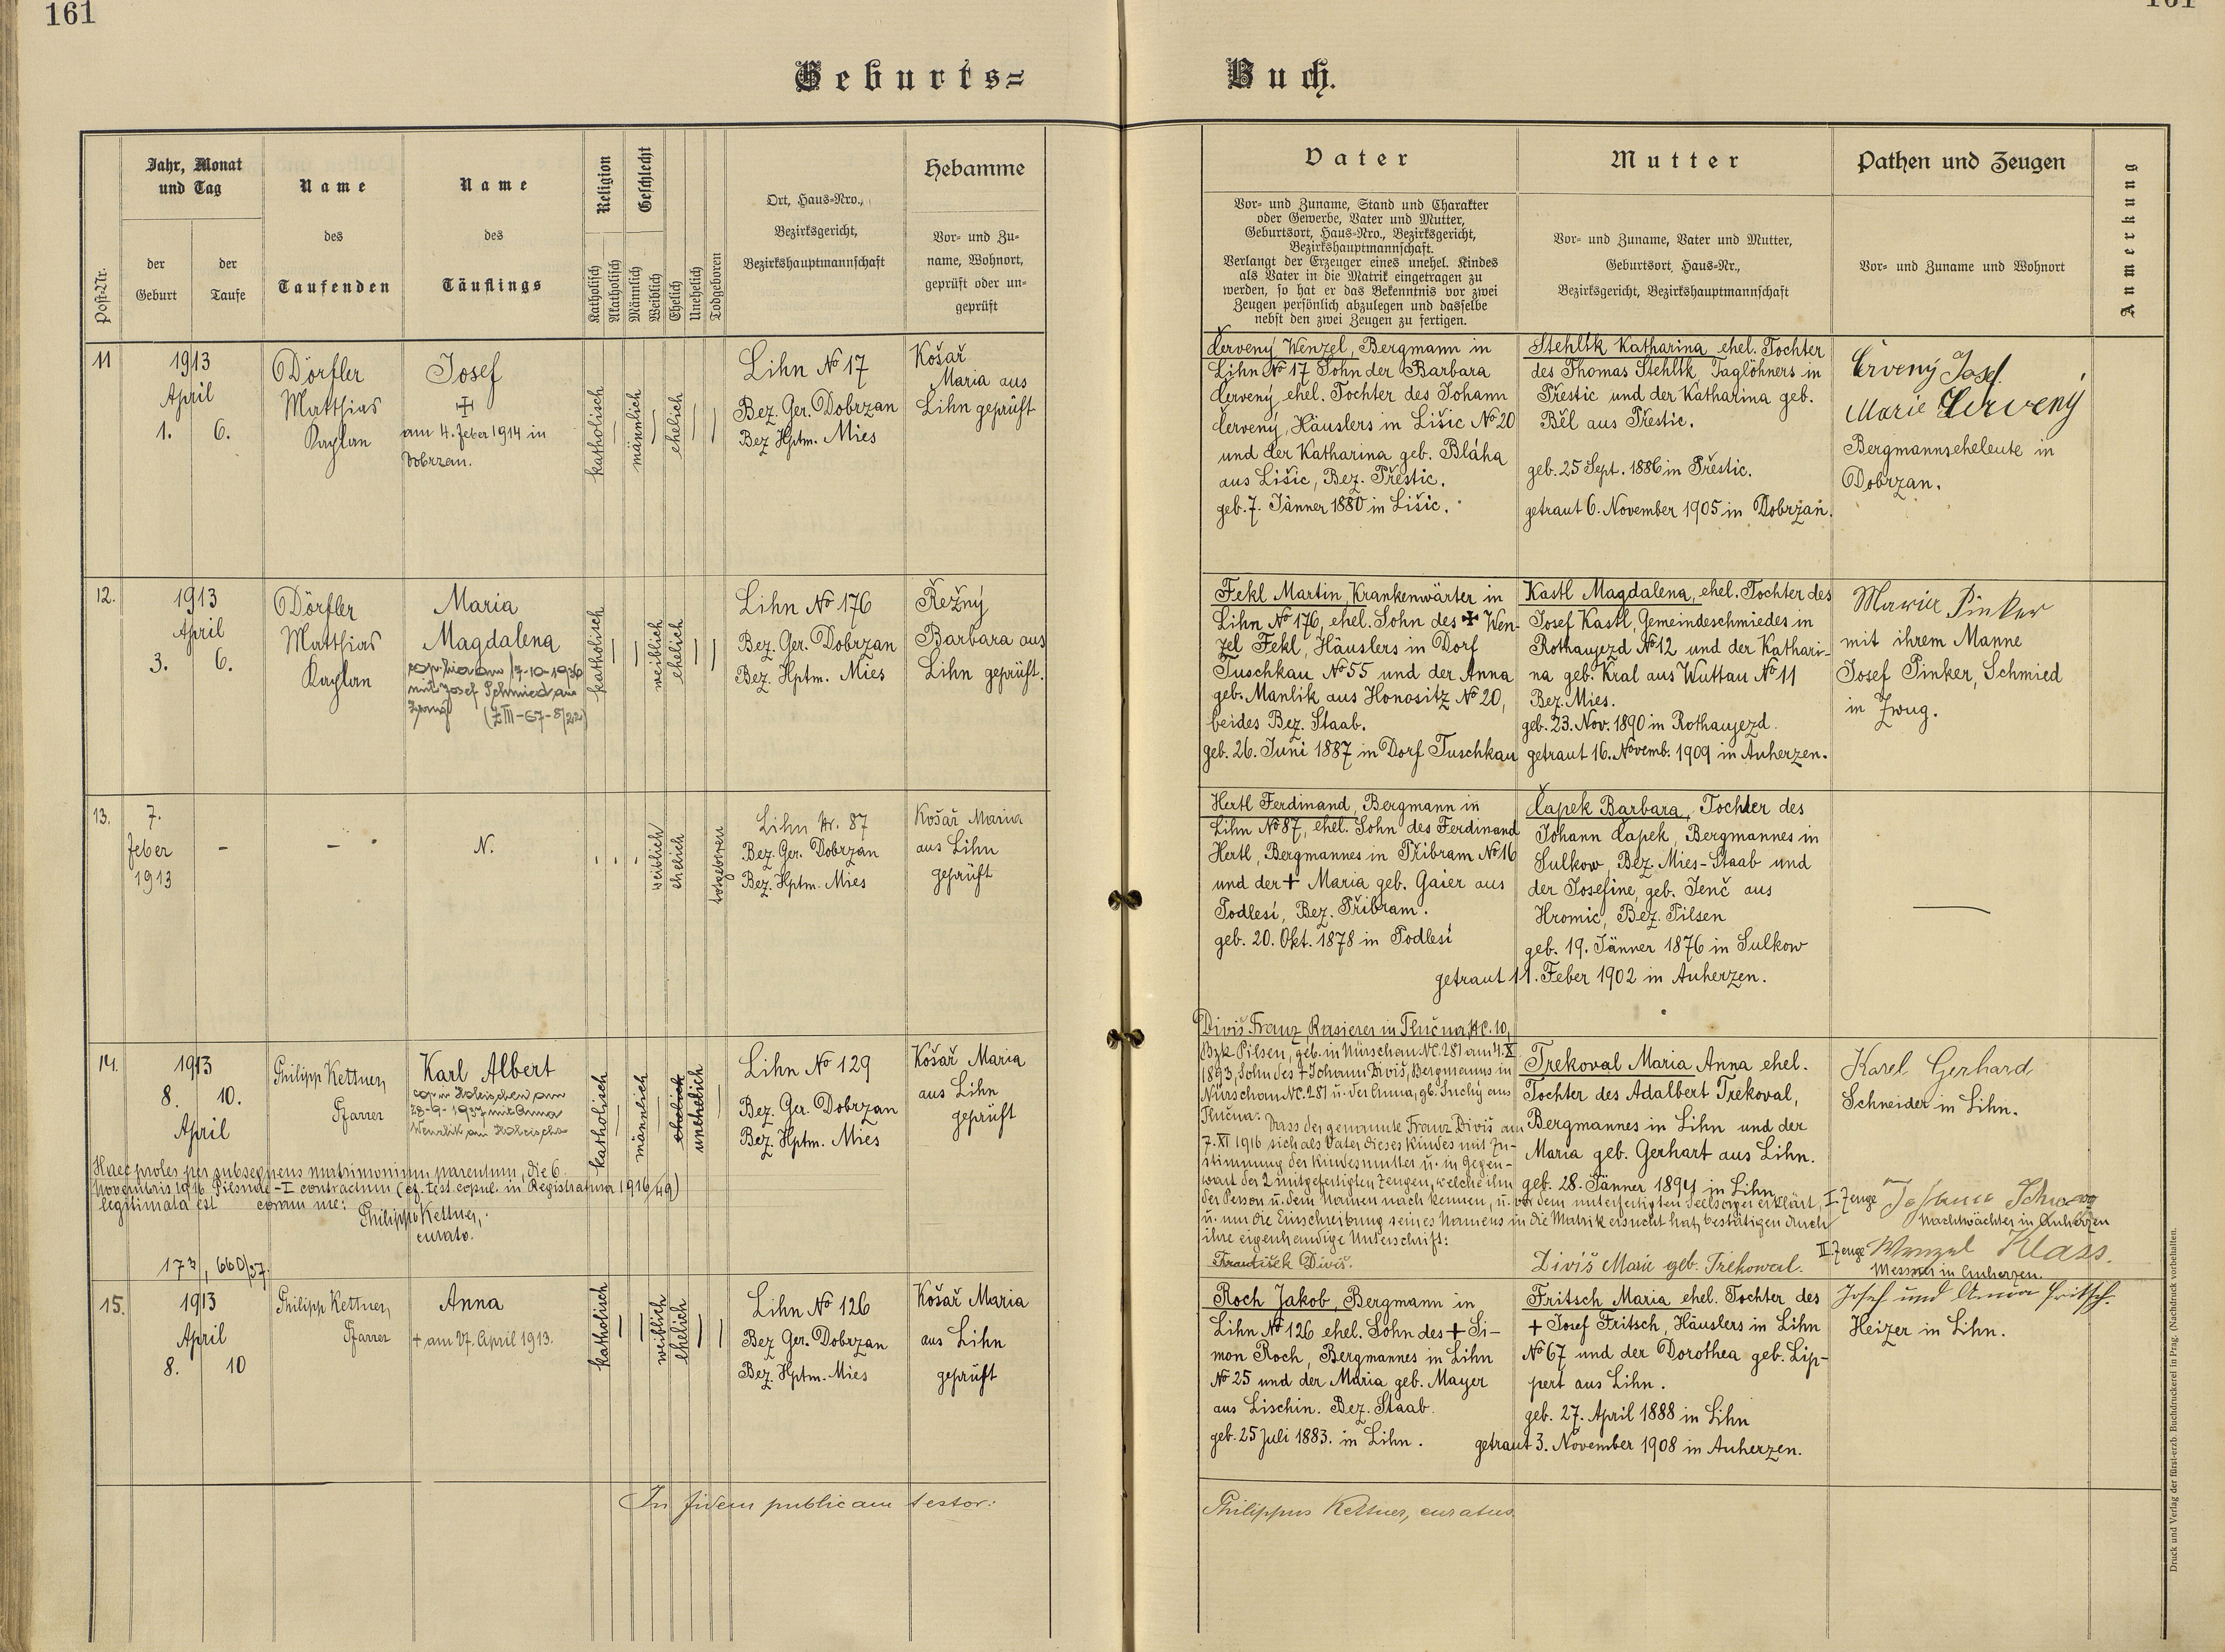 161
161
Geburts=
Buch.
Post-Nr.
Jahr, Monat
und Tag
der
Geburt
der
Taufe
Name
des
Taufenden
Name
des
Täuflings
Religion
Katholisch
Akatholisch
Geschlecht
Männlich
Weiblich
Ehelich
Unehelich
Todgeboren
Ort, Haus=Nro.,
Bezirksgericht,
Bezirkshauptmannschaft
Hebamme
Vor= und Zu=
name, Wohnort,
geprüft oder un=
geprüft
Vater
Vor= und Zuname, Stand und Charakter
oder Gewerbe, Vater und Mutter,
Geburtsort, Haus=Nro., Bezirksgericht,
Bezirkshauptmannschaft.
Verlangt der Erzeuger eines unehel. Kindes
als Vater in die Matrik eingetragen zu
werden, so hat er das Bekenntnis vor zwei
Zeugen persönlich abzulegen und dasselbe
nebst den zwei Zeugen zu fertigen.
Mutter
Vor= und Zuname, Vater und Mutter,
Geburtsort, Haus=Nr.,
Bezirksgericht, Bezirkshauptmannschaft
Pathen und Zeugen
Vor= und Zuname und Wohnort
Anmerkung
11
1913
April
1. 6.
Dörfler
Matthias
Kaplan
Josef
✝
am 4. Feber 1914 in
Dobrzan.
katholisch
männlich
ehelich
Lihn No 17
Bez. Ger. Dobrzan
Bez Hptm. Mies
Košař
Maria aus
Lihn geprüft
Červený Wenzel, Bergmann in
Lihn No 17 Sohn der Barbara
Červený, ehel. Tochter des Johann
Červený, Häuslers in Lišic No 20
und der Katharina geb. Bláha
aus Lišic, Bez. Přestic.
geb. 7. Jänner 1880 in Lišic.
Stehlík Katharina ehel. Tochter
des Thomas Stehlík, Taglöhners in
Přestic und der Katharina geb.
Běl aus Přestic.
geb. 25 Sept. 1886 in Přestic.
getraut 6. November 1905 in Dobrzan.
Červený Josef
Marie Červený
Bergmannseheleute in
Dobrzan.
12.
1913
April
3. 6.
Dörfler
Matthias
Kaplan
Maria
Magdalena
17-10-1936
mit Josef Schmied aus
(Z III-67-8/22)
katholisch
weiblich
ehelich
Lihn No 176
Bez. Ger. Dobrzan
Bez. Hptm. Mies
Řežný
Barbara aus
Lihn geprüft.
Fekl Martin, Krankenwärter in
Lihn No 176, ehel. Sohn des ✝ Wen-
zel Fekl, Häuslers in Dorf
Tuschkau No 55 und der Anna
geb. Manlik aus Honositz No 20,
beides Bez. Staab.
geb. 26. Juni 1887 in Dorf Tuschkau
Kastl Magdalena, ehel. Tochter des
Josef Kastl, Gemeindeschmiedes in
Rothaujezd No 12 und der Kathari-
na geb. Kral aus Wuttau No 11
Bez. Mies.
geb. 23. Nov. 1890 in Rothaujezd.
getraut 16. Novemb. 1909 in Auherzen.
Maria Pinker
mit ihrem Manne
Josef Pinker, Schmied
in Zwug.
13.
7.
Feber
1913
–
–
N.
weiblich
ehelich
totgeboren
Lihn Nr. 87
Bez. Ger. Dobrzan
Bez. Hptm. Mies
Košař Maria
aus Lihn
geprüft
Hertl Ferdinand, Bergmann in
Lihn No 87, ehel. Sohn des Ferdinand
Hertl, Bergmannes in Přibram No 16
und der ✝ Maria geb. Gaier aus
Podlesí, Bez. Přibram.
geb. 20. Okt. 1878 in Podlesí
Čapek Barbara, Tochter des
Johann Čapek, Bergmannes in
Sulkow, Bez. Mies-Staab und
der Josefine, geb. Jenč aus
Hromic, Bez. Pilsen
geb. 19. Jänner 1876 in Sulkow
getraut 11. Feber 1902 in Auherzen.
14.
1913
8. 10.
April
Philipp Kettner,
Pfarrer
Karl Albert
cop. in Holeischen am
28-9-1937 mit Anna
katholisch
männlich
ehelich
unehelich
Lihn No 129
Bez. Ger. Dobrzan
Bez. Hptm. Mies
Košař Maria
aus Lihn
geprüft
Haec proles per subsequens matrimonium parentum, die 6.
Novembris 1916 Pilsnae-I contractum (cf. test. copul. in Registratura 1916/49)
legitimata est coram me:
Philippo Kettner,
curato.
Diviš Franz, Rasierer in Tlučna, NC. 10,
Bzk Pilsen, geb. in Nürschau NC. 281 am 4. X.
1893, Sohn des ✝ Johann Diviš, Bergmanns in
Nürschau NC. 281 u. der Anna, gb. Suchý aus
Tlučna: Dass der genannte Franz Diviš am
7. XI 1916 sich als Vater dieses Kindes mit Zu-
stimmung der Kindesmutter u. in Gegen-
wart der 2 mitgefertigten Zeugen, welche ihn
der Person u. dem Namen nach kennen, u. vor dem unterfertigten Seelsorger erklärt,
u. um die Einschreibung seines Namens in die Matrik ersucht hat, bestätigen durch
ihre eigenhändige Unterschrift:
František Diviš.
Trekoval Maria Anna ehel.
Tochter des Adalbert Trekoval,
Bergmannes in Lihn und der
Maria geb. Gerhart aus Lihn.
geb. 28. Jänner 1894 in Lihn
Diviš Marie geb. Trekowal.
Karel Gerhard
Schneider in Lihn.
I Zeuge
Nachtwächter in Auherzen
II. Zeuge Wenzel Klass.
Messner in Auherzen.
173, 660/37.
15.
1913
April
8. 10
Philipp Kettner,
Pfarrer
Anna
✝ am 27. April 1913.
katholisch
weiblich
ehelich
Lihn No 126
Bez Ger. Dobrzan
Bez. Hptm. Mies
Košař Maria
aus Lihn
geprüft
Roch Jakob, Bergmann in
Lihn No 126 ehel. Sohn des ✝ Si-
mon Roch, Bergmannes in Lihn
No 25 und der Maria geb. Mayer
aus Lischin. Bez. Staab.
geb. 25 Juli 1883. in Lihn.
Fritsch Maria ehel. Tochter des
✝ Josef Fritsch, Häuslers in Lihn
No 67 und der Dorothea geb. Lip-
pert aus Lihn.
geb. 27. April 1888 in Lihn
getraut 3. November 1908 in Auherzen.
Josef und Anna Fritsch.
Heizer in Lihn.
In fidem publicam testor:
Philippus Kettner, curatus.
Druck und Verlag der fürst-erzb. Buchdruckerei in Prag. (Nachdruck vorbehalten.